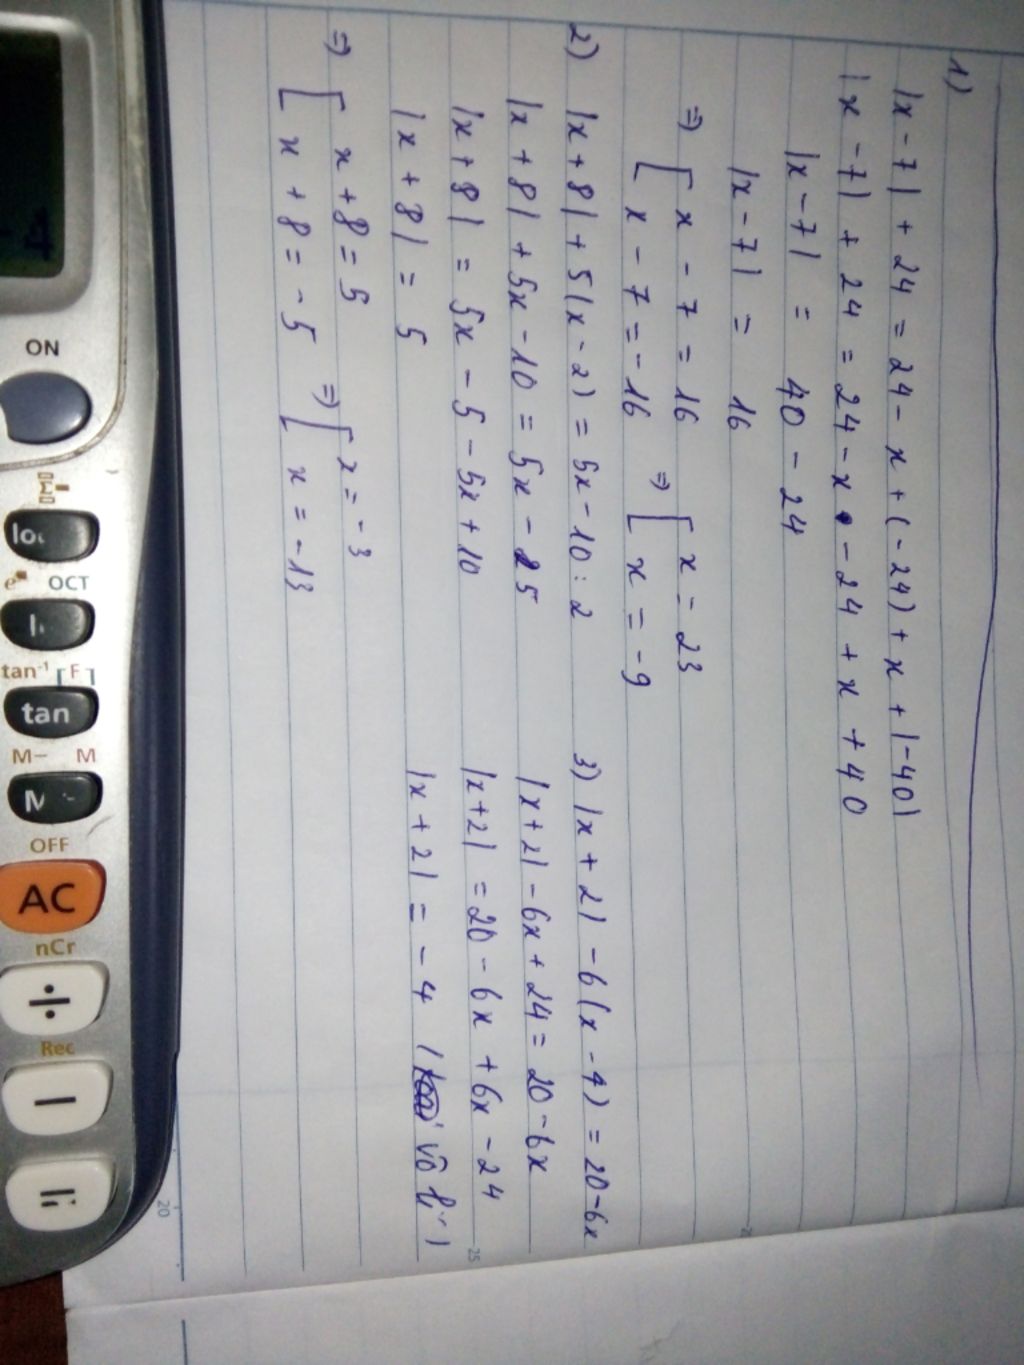 1)
|x - 7| + 24 = 24 - x + (-24) + x + |-40|
|x - 7| + 24 = 24 - x - 24 + x + 40
|x - 7| = 40 - 24
|x - 7| = 16
⇒ [ x - 7 = 16 ⇒ [ x = 23
x - 7 = -16 x = -9
2) |x + 8| + 5(x - 2) = 5x - 10 : 2
|x + 8| + 5x - 10 = 5x - 5
|x + 8| = 5x - 5 - 5x + 10
|x + 8| = 5
⇒ [ x + 8 = 5 ⇒ [ x = -3
x + 8 = -5 x = -13
3) |x + 2| - 6(x - 4) = 20 - 6x
|x + 2| - 6x + 24 = 20 - 6x
|x + 2| = 20 - 6x + 6x - 24
|x + 2| = -4 ( vô lí )
20
25
4
ON
Σ
log
e OCT
tan⁻¹ F
tan
M- M
M
OFF
AC
nCr
÷
Rec
−
=